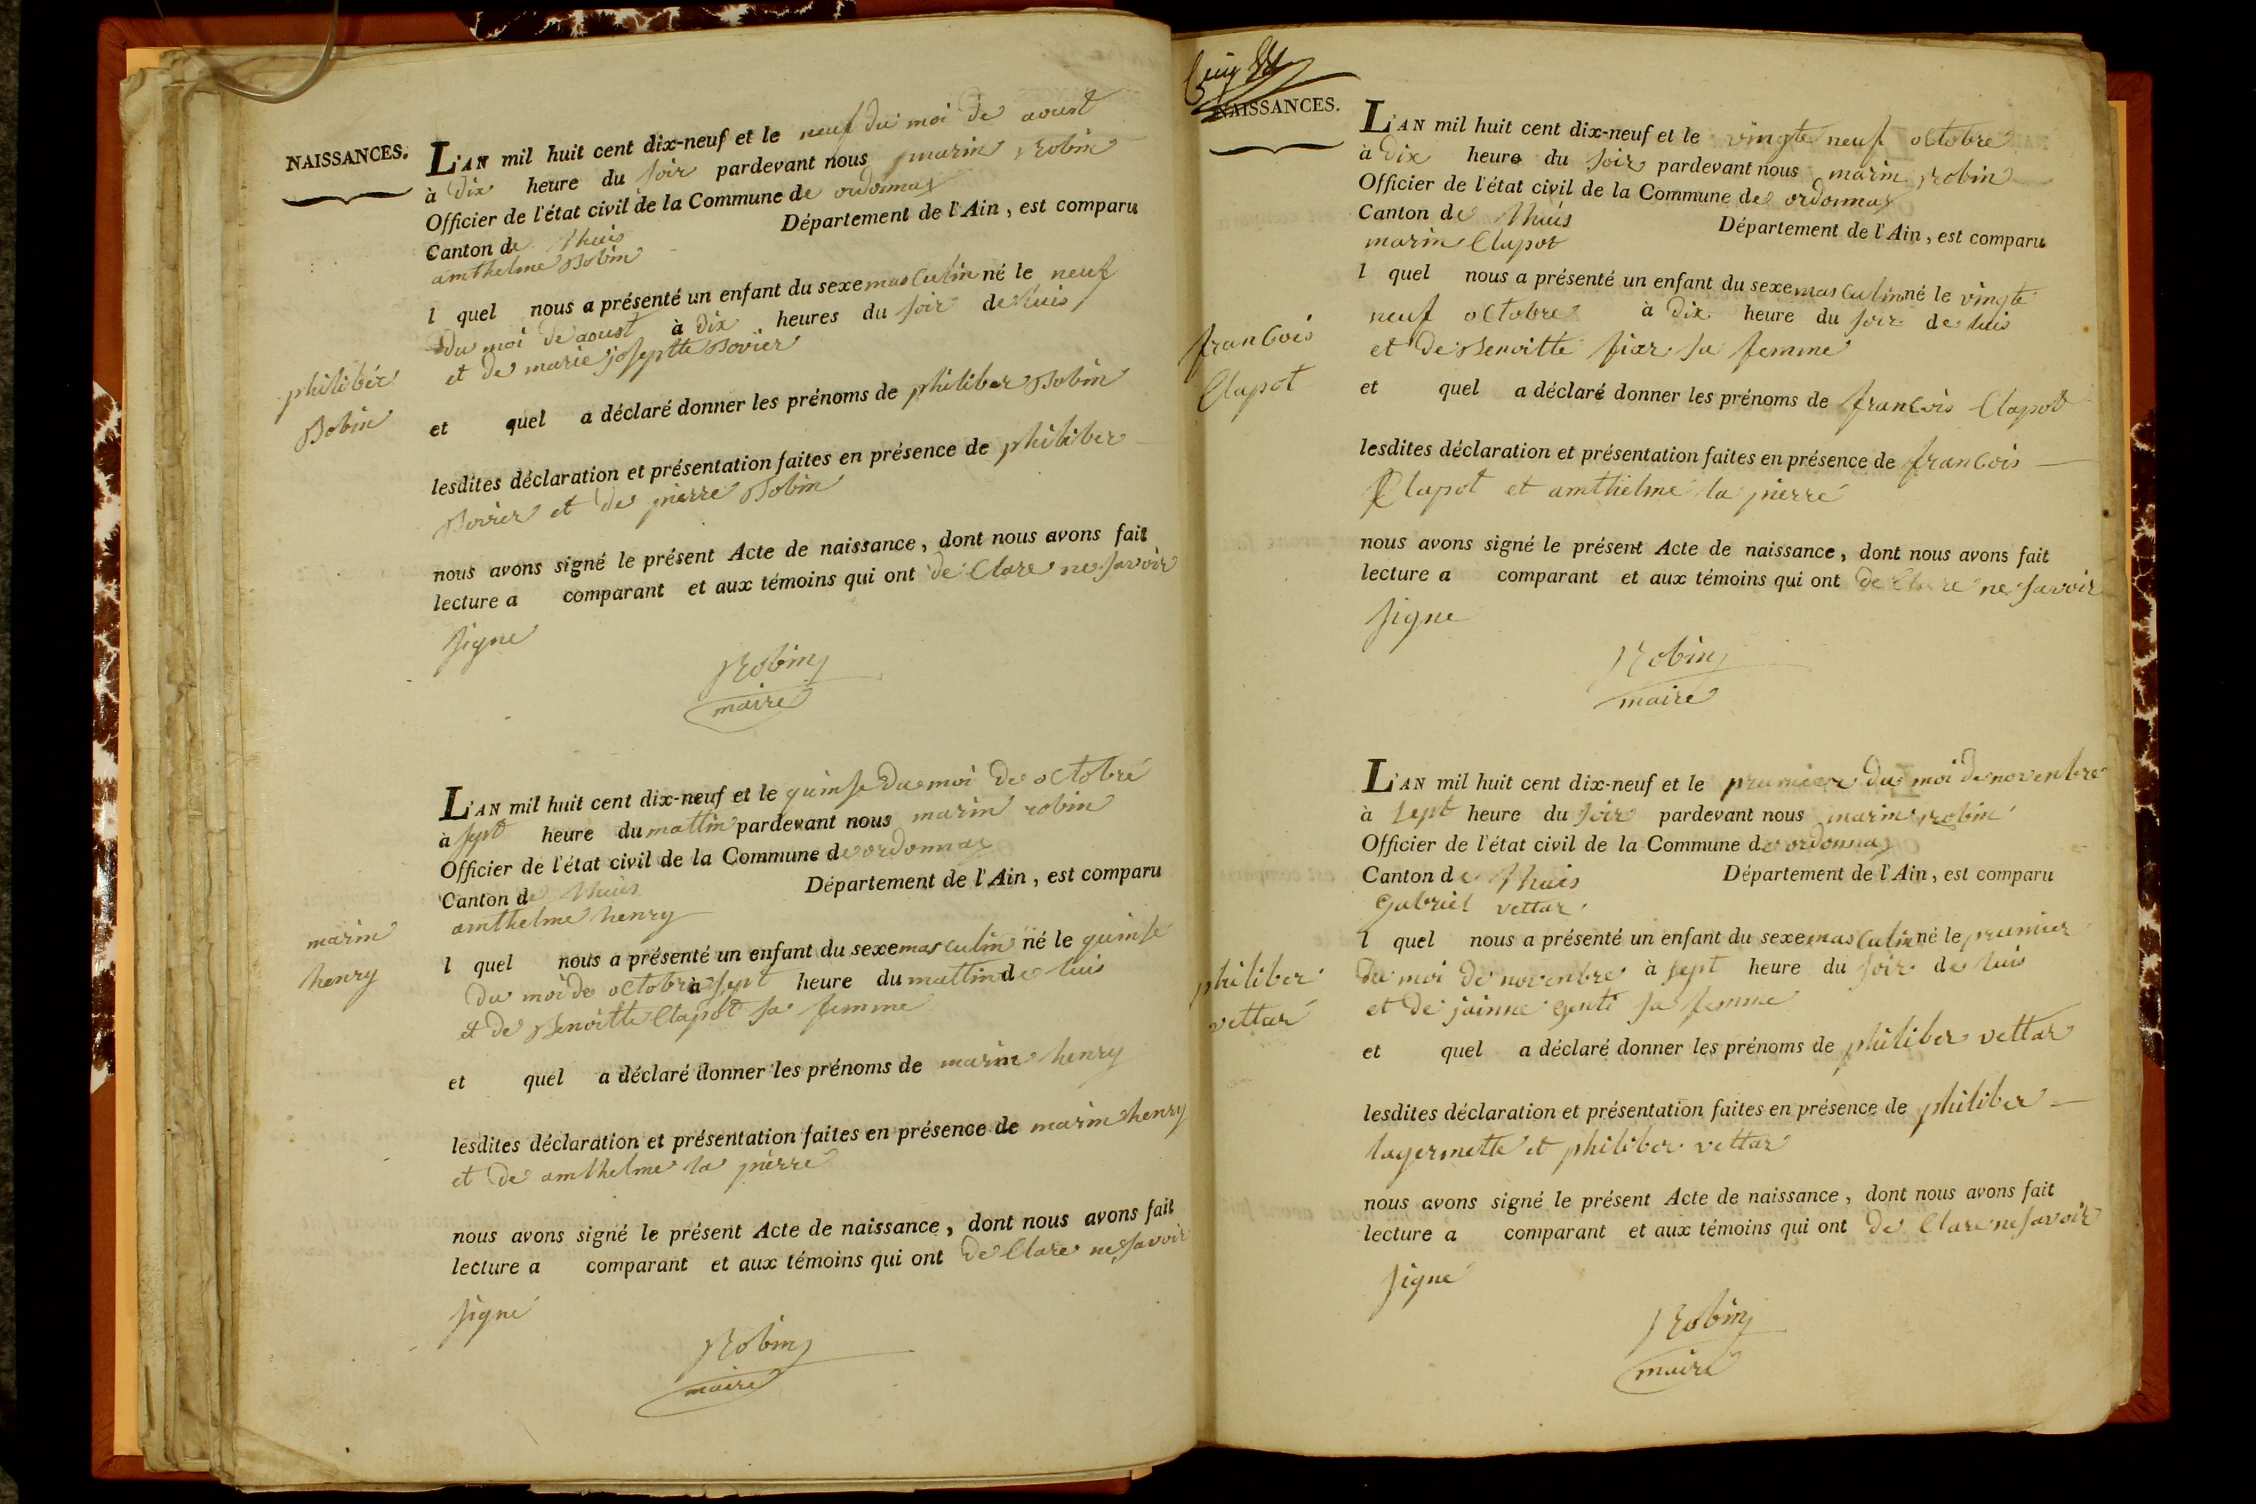 NAISSANCES.
L'AN mil huit cent dix-neuf et le neuf du moi de aoust
à dix heure du soir pardevant nous marin Robin
Officier de l'état civil de la Commune de ordonnaz
Canton de lhuis Département de l'Ain, est comparu
amthelme Bobin
l quel nous a présenté un enfant du sexe masculin né le neuf
du moi de aoust à dix heures du soir de luis
et de marie josephtte Bovier
philibér
Bobin
et quel a déclaré donner les prénoms de philiber Bobin
lesdites déclaration et présentation faites en présence de philiber
Bovier et de pierre Bobin
nous avons signé le présent Acte de naissance, dont nous avons fait
lecture a comparant et aux témoins qui ont de Clare ne savoir
signe
Robin
maire
L'AN mil huit cent dix-neuf et le quinse du moi de octobre
à sept heure du mattin pardevant nous marin robin
Officier de l'état civil de la Commune de ordonnaz
Canton de lhuis Département de l'Ain, est comparu
amthelme henry
marin
henry
l quel nous a présenté un enfant du sexe masculin né le quinse
du moi de octobre à sept heure du mattin de luis
et de Benoitte Clapot sa femme
et quel a déclaré donner les prénoms de marin henry
lesdites déclaration et présentation faites en présence de marin henry
et de amthelme la pierre
nous avons signé le présent Acte de naissance, dont nous avons fait
lecture a comparant et aux témoins qui ont de Clare ne savoir
signe
Robin
maire
NAISSANCES.
L'AN mil huit cent dix-neuf et le vingte neuf octobre
à dix heure du soir pardevant nous marin robin
Officier de l'état civil de la Commune de ordonnaz
Canton de lhuis Département de l'Ain, est comparu
marin Clapot
l quel nous a présenté un enfant du sexe masculin né le vingte
neuf octobre à dix heure du soir de luis
et de Benoitte fixr sa femme
francois
Clapot
et quel a déclaré donner les prénoms de francois Clapot
lesdites déclaration et présentation faites en présence de francois
Clapot et amthelme la pierre
nous avons signé le présent Acte de naissance, dont nous avons fait
lecture a comparant et aux témoins qui ont de Clare ne savoir
signe
Robin
maire
L'AN mil huit cent dix-neuf et le prumier du moi de novenbre
à sept heure du soir pardevant nous marin robin
Officier de l'état civil de la Commune de ordonnaz
Canton de lhuis Département de l'Ain, est comparu
gabriel vettar
l quel nous a présenté un enfant du sexe masculin né le prumier
du moi de novenbre à sept heure du soir de luis
et de jainne genti sa femme
philiber
vettar
et quel a déclaré donner les prénoms de philiber vettar
lesdites déclaration et présentation faites en présence de philiber
lagermette et philiber vettar
nous avons signé le présent Acte de naissance, dont nous avons fait
lecture a comparant et aux témoins qui ont de Clare ne savoir
signe
Robin
maire